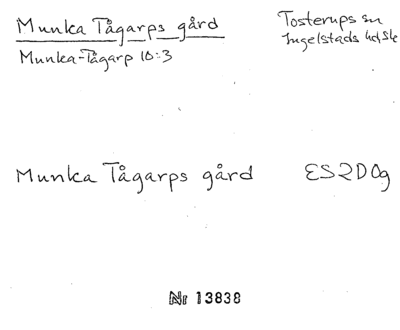 Munka Tågarps gård
Munka-Tågarp 10:3
Tosterups sn
Ingelstads hd Sk
Munka Tågarps gård ES2D0g
Nr 13838